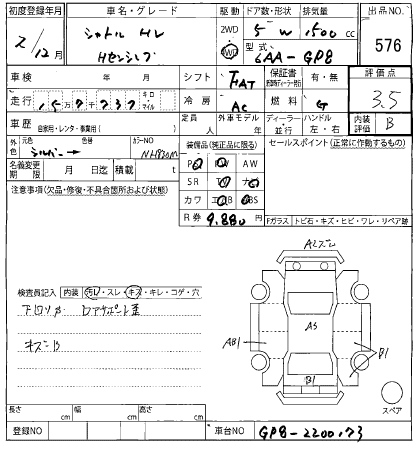 初度登録年月 車名・グレード 駆動 ドア数・形状 排気量 出品NO.
2/12月 シャトル HV 2WD 5 W 1500 cc 576
Hセンシング 4WD 型式 6AA-GP8
車検 年 月 シフト FAT 保証書 有・無 評価点
走行 キロ マイル 冷房 AC 燃料 G 3.5
車歴 自家用・レンタ・事業用( ) 定員 人 外車モデル 年 ディーラー・並行 ハンドル 左・右 内装評価 B
外色 元色 シルバー → 色替 カラーNO NH830M 装備品(純正品に限る) セールスポイント(正常に作動するもの)
名義変更期限 月 日迄 積載 t AW
注意事項(欠品・修復・不具合箇所および状態) SR
カワ
R券 9,880 円 Fガラス トビ石・キズ・ヒビ・ワレ・リペア跡
A2ズレ
検査員記入 内装 汚レ・スレ・キズ・キレ・コゲ・穴
AS
AB1
B1
キズ B
B1
スペア
長さ cm 幅 cm 高さ cm
登録NO 車台NO GP8-2200173